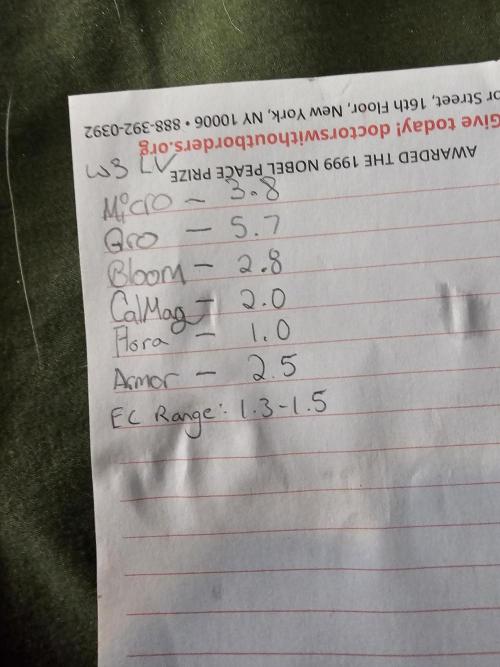 or Street, 16th Floor, New York, NY 10006 • 888-392-0392
Give today! doctorswithoutborders.org
AWARDED THE 1999 NOBEL PEACE PRIZE
W3 LV
Micro - 3.8
Gro - 5.7
Bloom - 2.8
CalMag - 2.0
Flora - 1.0
Armor - 2.5
EC Range: 1.3-1.5